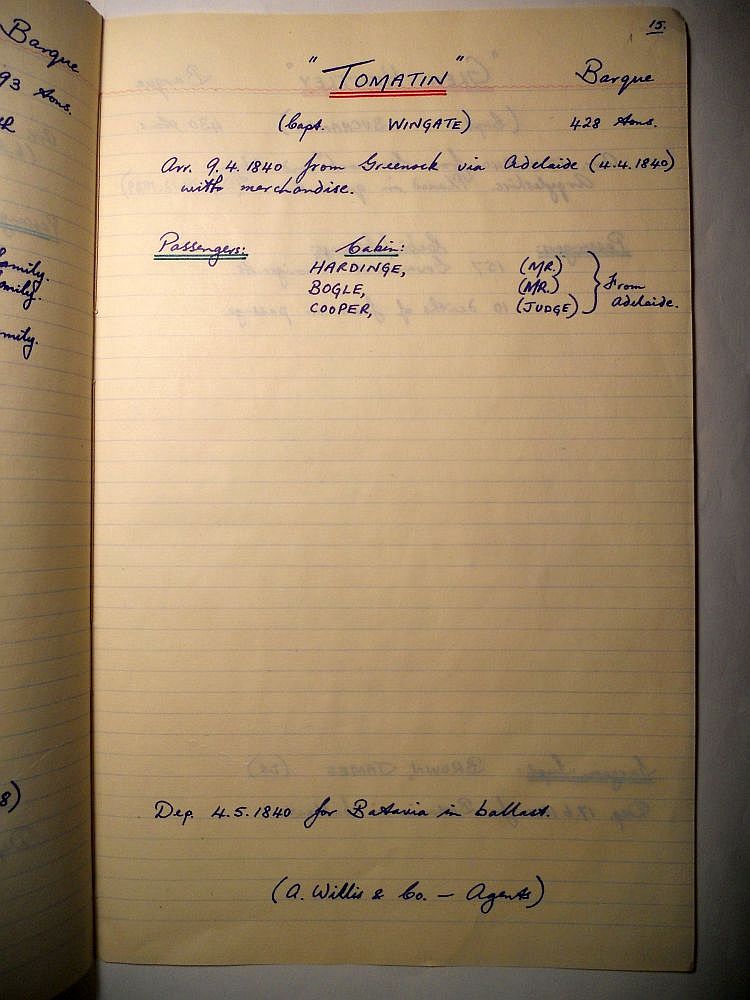 Barque
93 tons.
family.
family.
family.
8)
15.
"TOMATIN" Barque
(Capt. WINGATE) 428 tons.
Arr. 9.4.1840 from Greenock via Adelaide (4.4.1840)
with merchandise.
Passengers: Cabin:
HARDINGE, (MR.)
BOGLE, (MR.) From
COOPER, (JUDGE) Adelaide.
Dep. 4.5.1840 for Batavia in ballast.
(A. Willis & Co. – Agents)